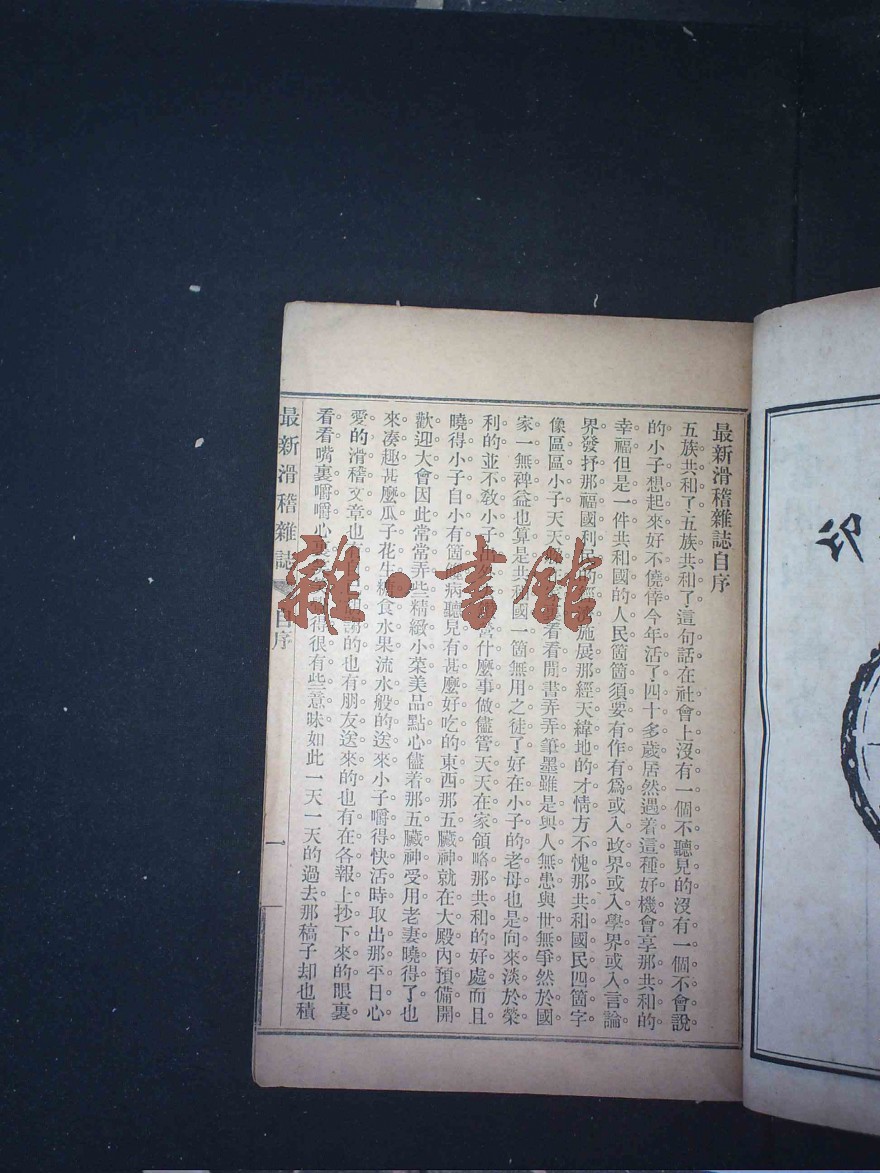 最新滑稽雜誌自序
五族共和了五族共和了這句話在社會上沒有一個不聽見的沒有一個不會說
的小子想起來好不僥倖今年活了四十多歲居然遇着這種好機會享那共和的
幸福但是一件共和國的人民箇箇須要有作有爲或入政界或入學界或入言論
界發抒那福國利民的 施展那經天緯地的才情方不愧那共和國民四箇字
像區區小子天天 看看閒書弄弄筆墨雖是與人無患與世無爭然於國
家一無裨益也算是共和國一箇無用之徒了好在小子的老母也是向來淡於榮
利的並不敎小子 什麼事做儘管天天在家領略那共和的好處而且
曉得小子自小有箇 病聽見有甚麼好吃的東西那五臟神就在大殿內預備開
歡迎大會因此常常弄些精緻小菜美品點心儘着那五臟神受用老妻曉得了也
來凑趣甚麼瓜子花生糖食水果流水般的送來小子嚼得快活時取出那平日心
愛的滑稽文章也有 的也有朋友送來的也有在各報上抄下來的眼裏
看看嘴裏嚼嚼心 得很有些意味如此一天一天的過去那稿子却也積
最新滑稽雜誌 自序 一
印
雜·書館